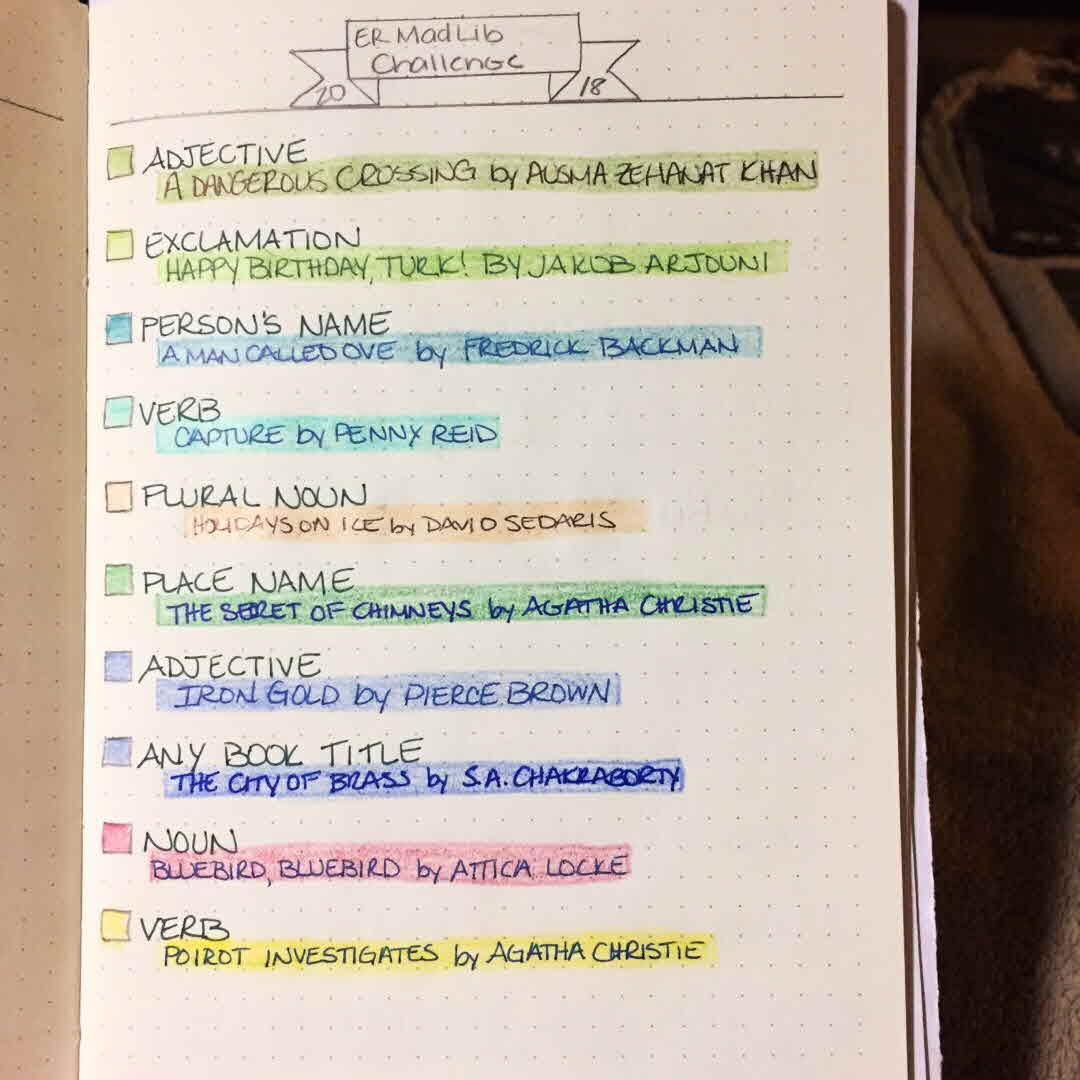 ER MadLib
Challenge
20 18
ADJECTIVE
A DANGEROUS CROSSING by AUSMA ZEHANAT KHAN
EXCLAMATION
HAPPY BIRTHDAY, TURK! BY JAKOB ARJOUNI
PERSON'S NAME
A MAN CALLED OVE by FREDRICK BACKMAN
VERB
CAPTURE by PENNY REID
PLURAL NOUN
HOLIDAYS ON ICE by DAVID SEDARIS
PLACE NAME
THE SERET OF CHIMNEYS by AGATHA CHRISTIE
ADJECTIVE
IRON GOLD by PIERCE BROWN
ANY BOOK TITLE
THE CITY OF BRASS by S.A. CHAKRABORTY
NOUN
BLUEBIRD, BLUEBIRD by ATTICA LOCKE
VERB
POIROT INVESTIGATES by AGATHA CHRISTIE